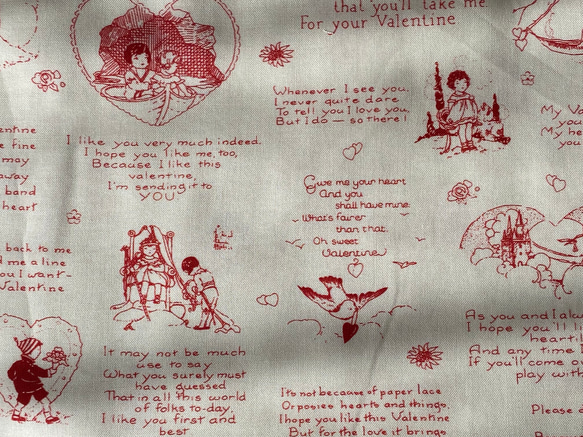 that you'll take me
For your Valentine
Whenever I see you,
I never quite dare
To tell you I love you,
But I do — so there!
I like you very much indeed.
I hope you like me, too,
Because I like this
valentine,
I'm sending it to
"YOU"
Give me your heart
And you
shall have mine.
What's fairer
than that.
Oh sweet
Valentine
It may not be much
use to say
What you surely must
have guessed
That in all this world
of folks to-day,
I like you first and
best
It's not because of paper lace
Or posies hearts and things,
I hope you like this Valentine
But for the love it brings
entine
e fine
may
away
band
heart
back to me
d me a line
ou I want-
Valentine
My Va
you
My he
you
As you and I alw
I hope you'll l
heart
And any time I
If you'll come o
play with
Please